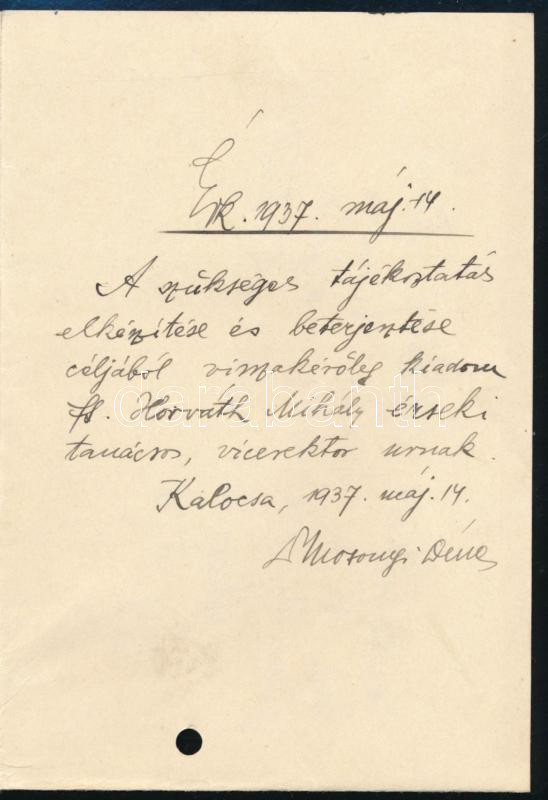 Érk. 1937. máj. 14.
A szükséges tájékoztatás
elkészítése és beterjesztése
céljából visszakérőleg kiadom
Horváth Mihály érseki
tanácsos, vicerektor urnak.
Kalocsa, 1937. máj. 14.
Mosonyi Dénes
darabanth